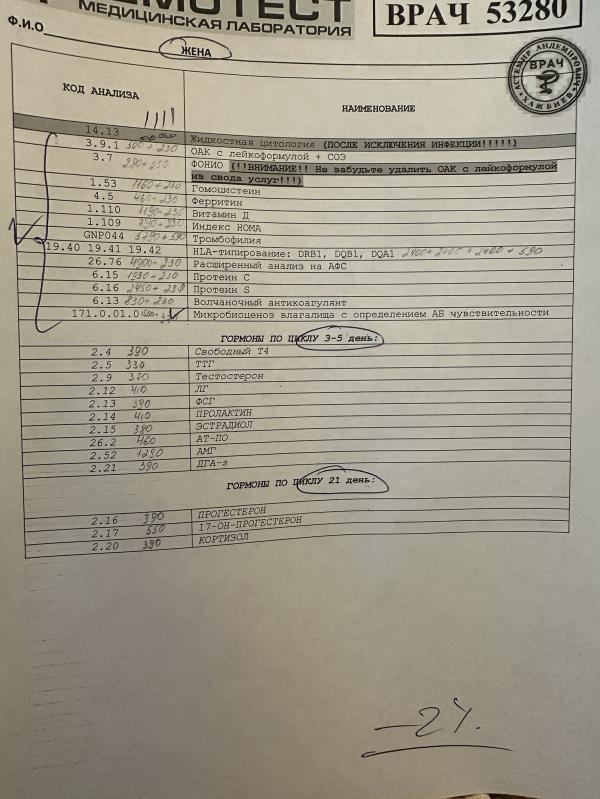 ГЕМОТЕСТ
МЕДИЦИНСКАЯ ЛАБОРАТОРИЯ
ВРАЧ 53280
Ф.И.О
ЖЕНА
ВРАЧ
КОД АНАЛИЗА НАИМЕНОВАНИЕ
14.13 Жидкостная цитология (ПОСЛЕ ИСКЛЮЧЕНИЯ ИНФЕКЦИИ!!!!!)
3.9.1 300+230 ОАК с лейкоформулой + СОЭ
3.7 280+250 ФОНИО (!!ВНИМАНИЕ!! Не забудьте удалить ОАК с лейкоформулой
из свода услуг!!!)
1.53 1160+230 Гомоцистеин
4.5 460+230 Ферритин
1.110 1190+230 Витамин Д
1.109 790+230 Индекс HOMA
GNP044 5290+590 Тромбофилия
19.40 19.41 19.42 HLA-типирование: DRB1, DQB1, DQA1 2400+2400+2400+590
26.76 4900+230 Расширенный анализ на АФС
6.15 1930+230 Протеин С
6.16 2450+230 Протеин S
6.13 830+230 Волчаночный антикоагулянт
171.0.01.0 Микробиоценоз влагалища с определением АБ чувствительности
ГОРМОНЫ ПО ЦИКЛУ 3-5 день:
2.4 390 Свободный Т4
2.5 330 ТТГ
2.9 370 Тестостерон
2.12 410 ЛГ
2.13 390 ФСГ
2.14 410 ПРОЛАКТИН
2.15 380 ЭСТРАДИОЛ
26.2 460 АТ-ПО
2.52 1290 АМГ
2.21 390 ДГА-s
ГОРМОНЫ ПО ЦИКЛУ 21 день:
2.16 390 ПРОГЕСТЕРОН
2.17 550 17-ОН-ПРОГЕСТЕРОН
2.20 390 КОРТИЗОЛ